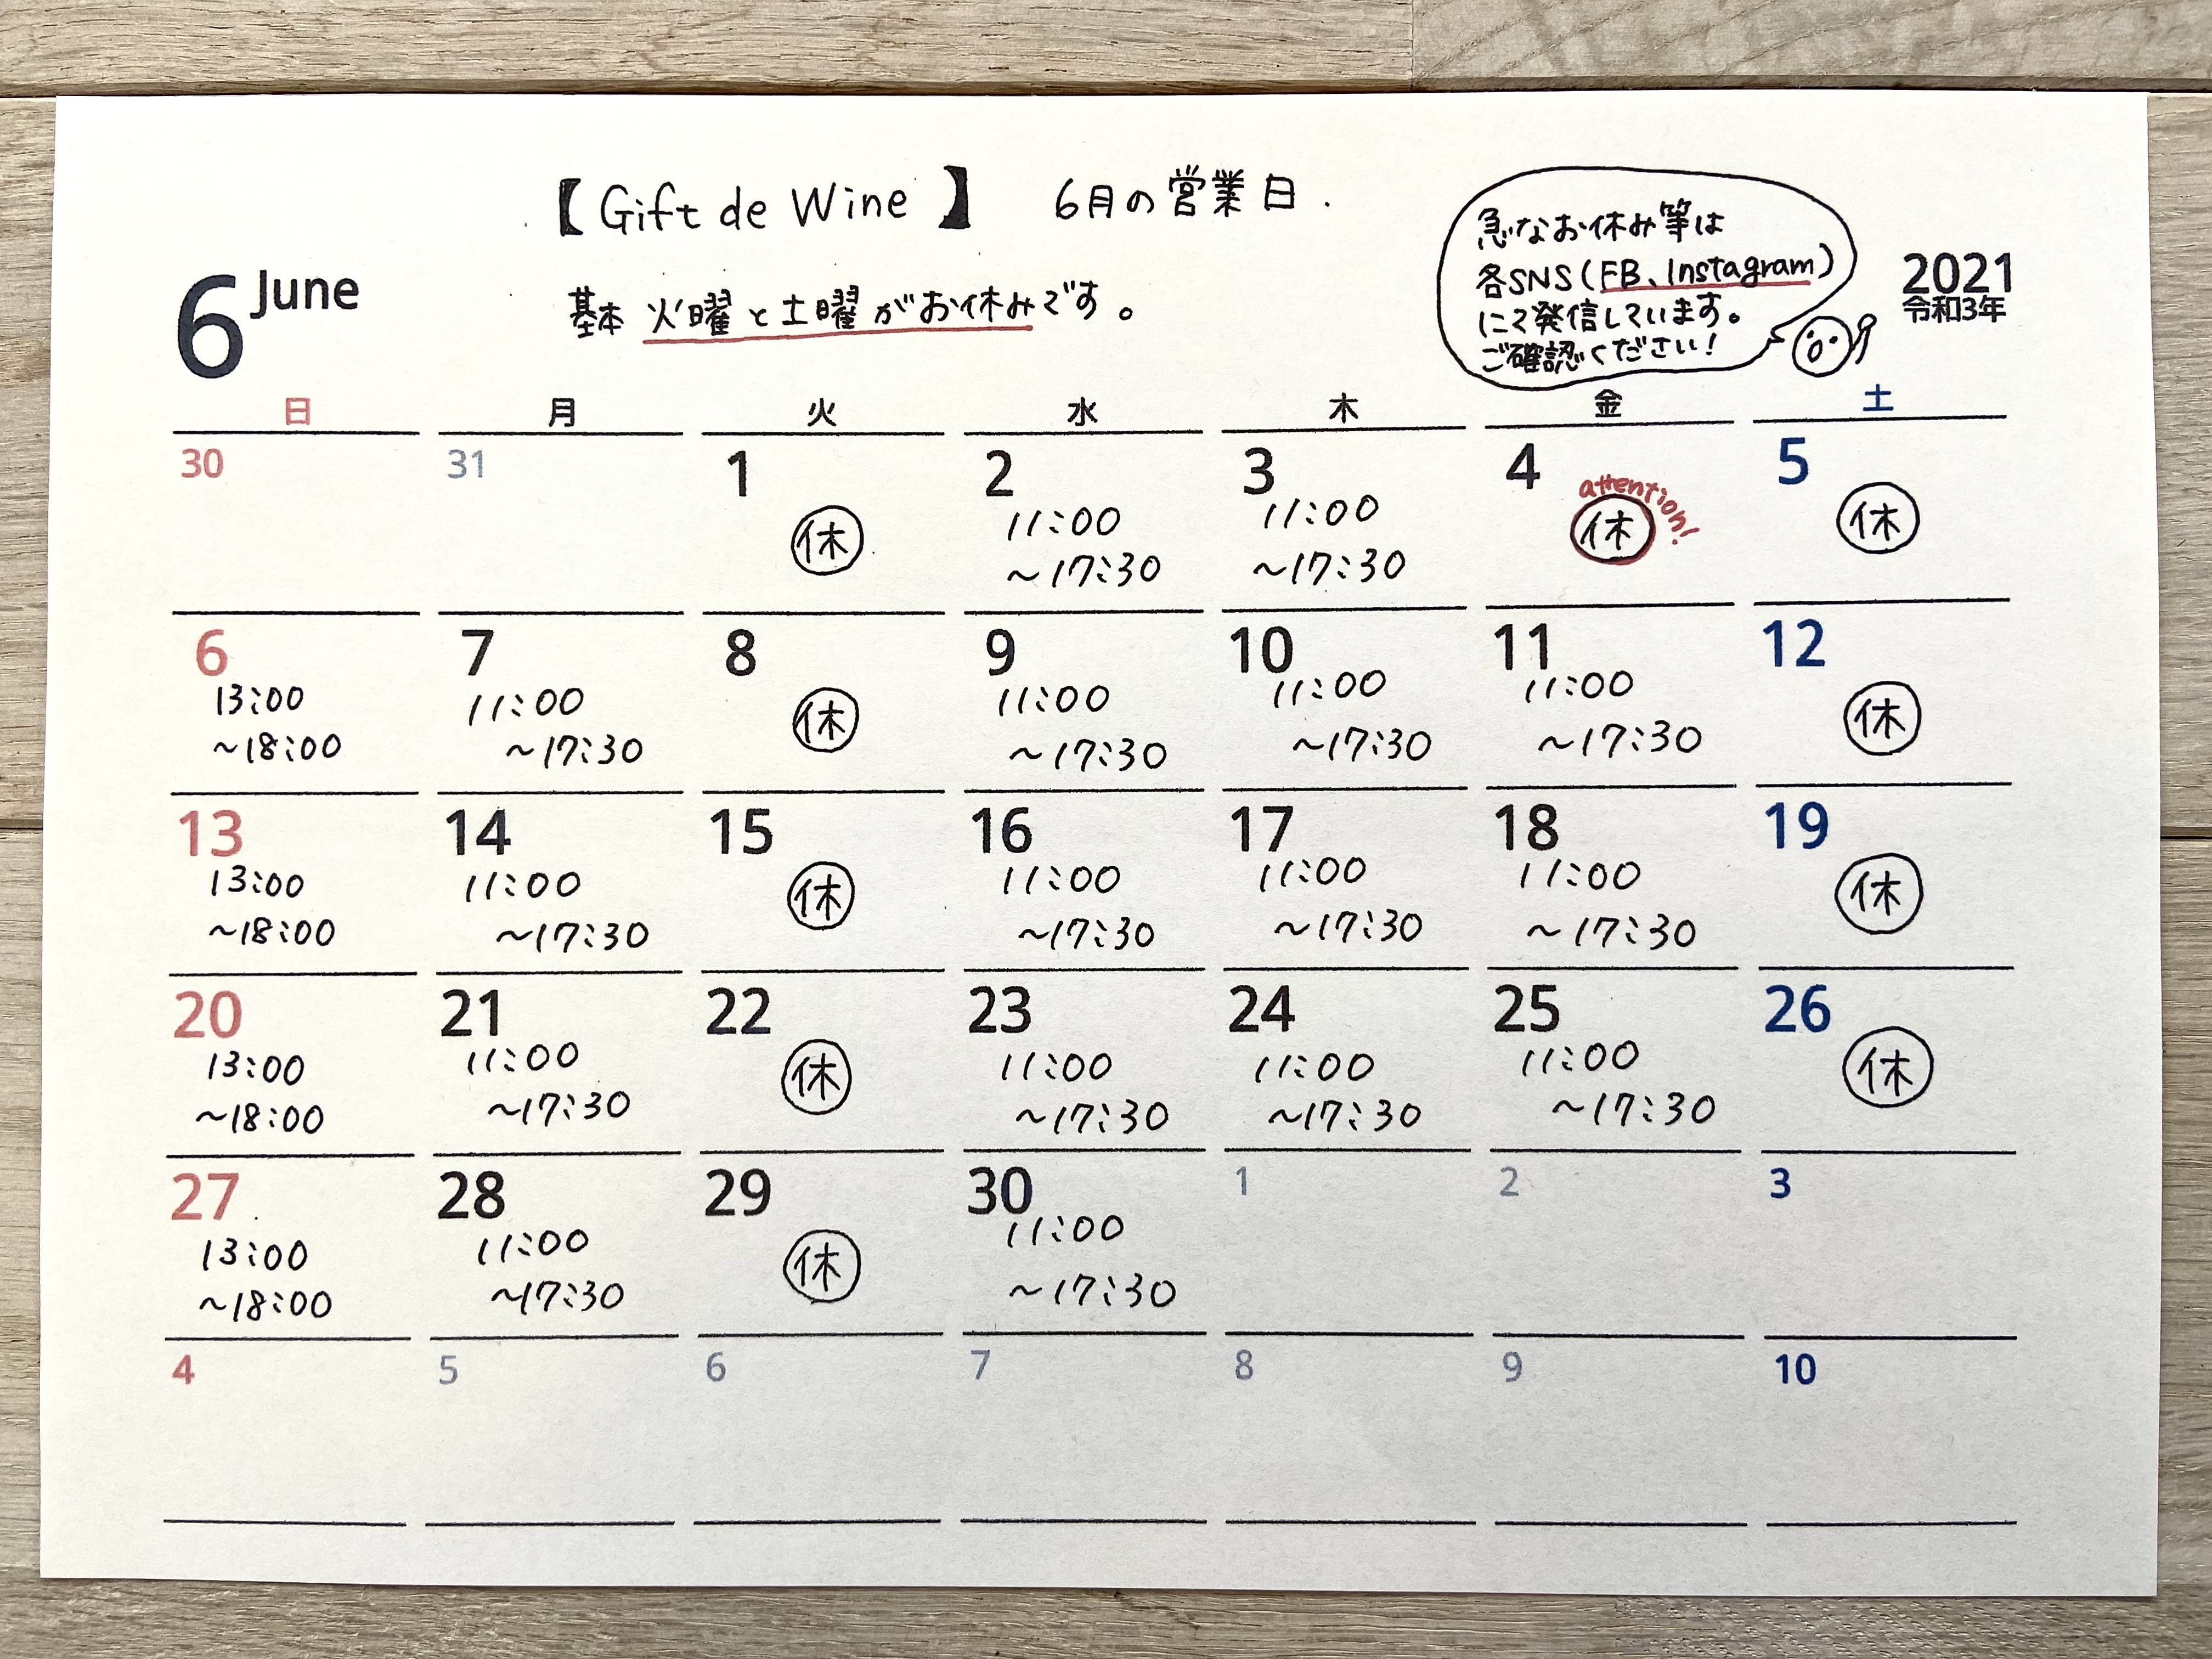 【Gift de Wine】 6月の営業日.
急なお休み等は
各SNS(FB、Instagram)
にて発信しています。
ご確認ください!
6 June
基本 火曜と土曜がお休みです。
2021
令和3年
日 月 火 水 木 金 土
30 31 1 2 3 4 5
attention!
休 11:00 11:00 休 休
~17:30 ~17:30
6 7 8 9 10 11 12
13:00 11:00 休 11:00 11:00 11:00 休
~18:00 ~17:30 ~17:30 ~17:30 ~17:30
13 14 15 16 17 18 19
13:00 11:00 休 11:00 11:00 11:00 休
~18:00 ~17:30 ~17:30 ~17:30 ~17:30
20 21 22 23 24 25 26
13:00 11:00 休 11:00 11:00 11:00 休
~18:00 ~17:30 ~17:30 ~17:30 ~17:30
27 28 29 30 1 2 3
13:00 11:00 休 11:00
~18:00 ~17:30 ~17:30
4 5 6 7 8 9 10